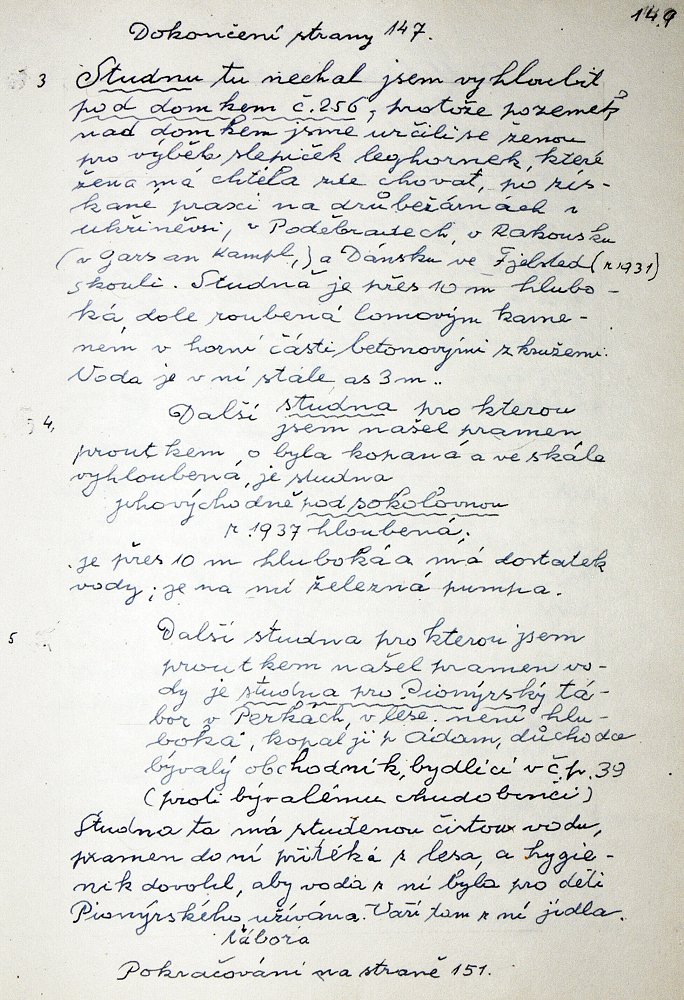 149
Dokončení strany 147.
3 Studnu tu nechal jsem vyhloubit
pod domkem č.256, protože pozemek
nad domkem jsme určili se ženou
pro výběh slepiček leghornek, které
žena má chtěla zde chovat, po zís-
kané praxi na drůbežárnách v
Uhříněvsi, v Poděbradech, v Rakousku
(v Gars an Kampl,) a Dánsku ve Fjelsted (r 1931)
skouli. Studna je přes 10 m hlubo-
ká dole roubená lomovým kame-
nem v horní části betonovými zkružemi.
Voda je v ní stále as 3 m..
4, Další studna pro kterou
jsem našel pramen
proutkem, a byla kopaná a ve skále
vyhloubená, je studna
jihovýchodně pod sokolovnou
r.1937 hloubená;
je přes 10 m hluboká a má dostatek
vody; je na ní železná pumpa.
5 Další studna pro kterou jsem
proutkem našel pramen vo-
dy je studna pro Pionýrský tá-
bor v Perkách, v lese. není hlu-
boká, kopal ji p Adam, důchodce
bývalý obchodník, bydlící v č.p. 39
(proti bývalému chudobinci)
Studna ta má studenou čistou vodu,
pramen do ní přitéká z lesa, a hygie-
nik dovolil, aby voda z ní byla pro děti
Pionýrského užívána. Vaří tam z ní jídla.
tábora
Pokračování na straně 151.